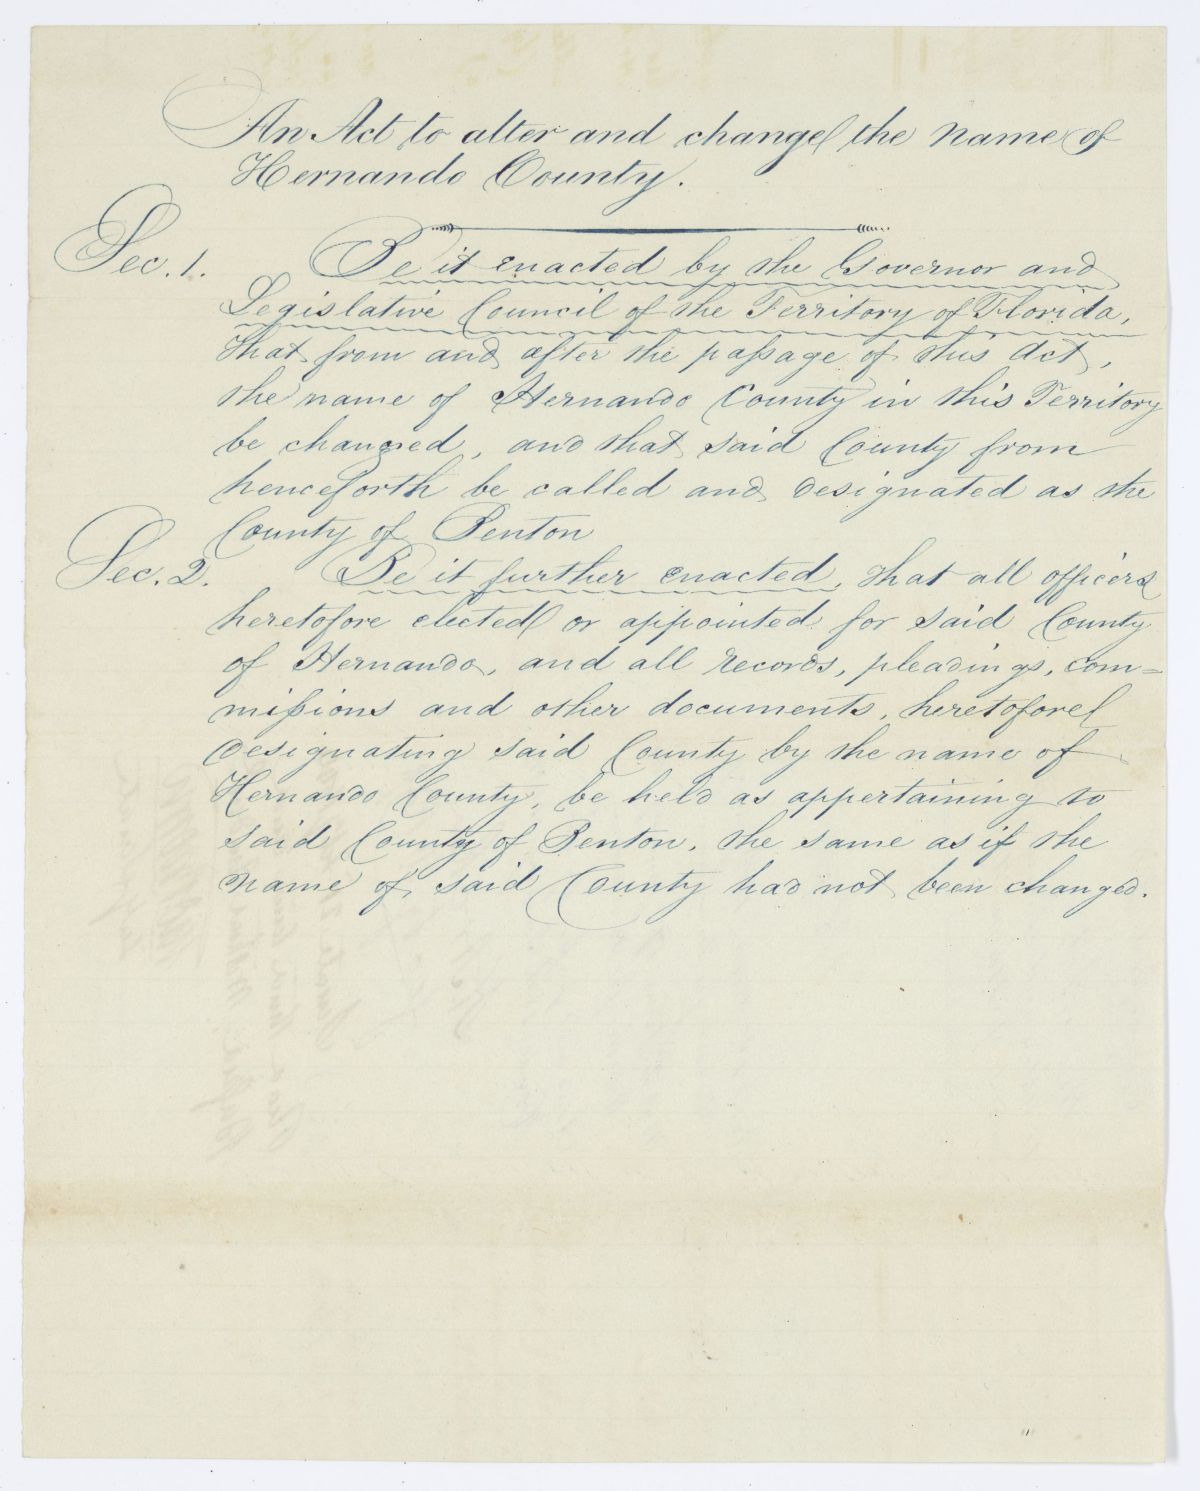 An Act to alter and change the name of
Hernando County.
Sec. 1. Be it enacted by the Governor and
Legislative Council of the Territory of Florida,
that from and after the passage of this Act,
the name of Hernando County in this Territory
be changed, and that said County from
henceforth be called and designated as the
County of Benton
Sec. 2. Be it further enacted, that all officers
heretofore elected or appointed for said County
of Hernando, and all records, pleadings, com=
missions and other documents, heretofore
designating said County by the name of
Hernando County, be held as appertaining to
said County of Benton, the same as if the
name of said County had not been changed.